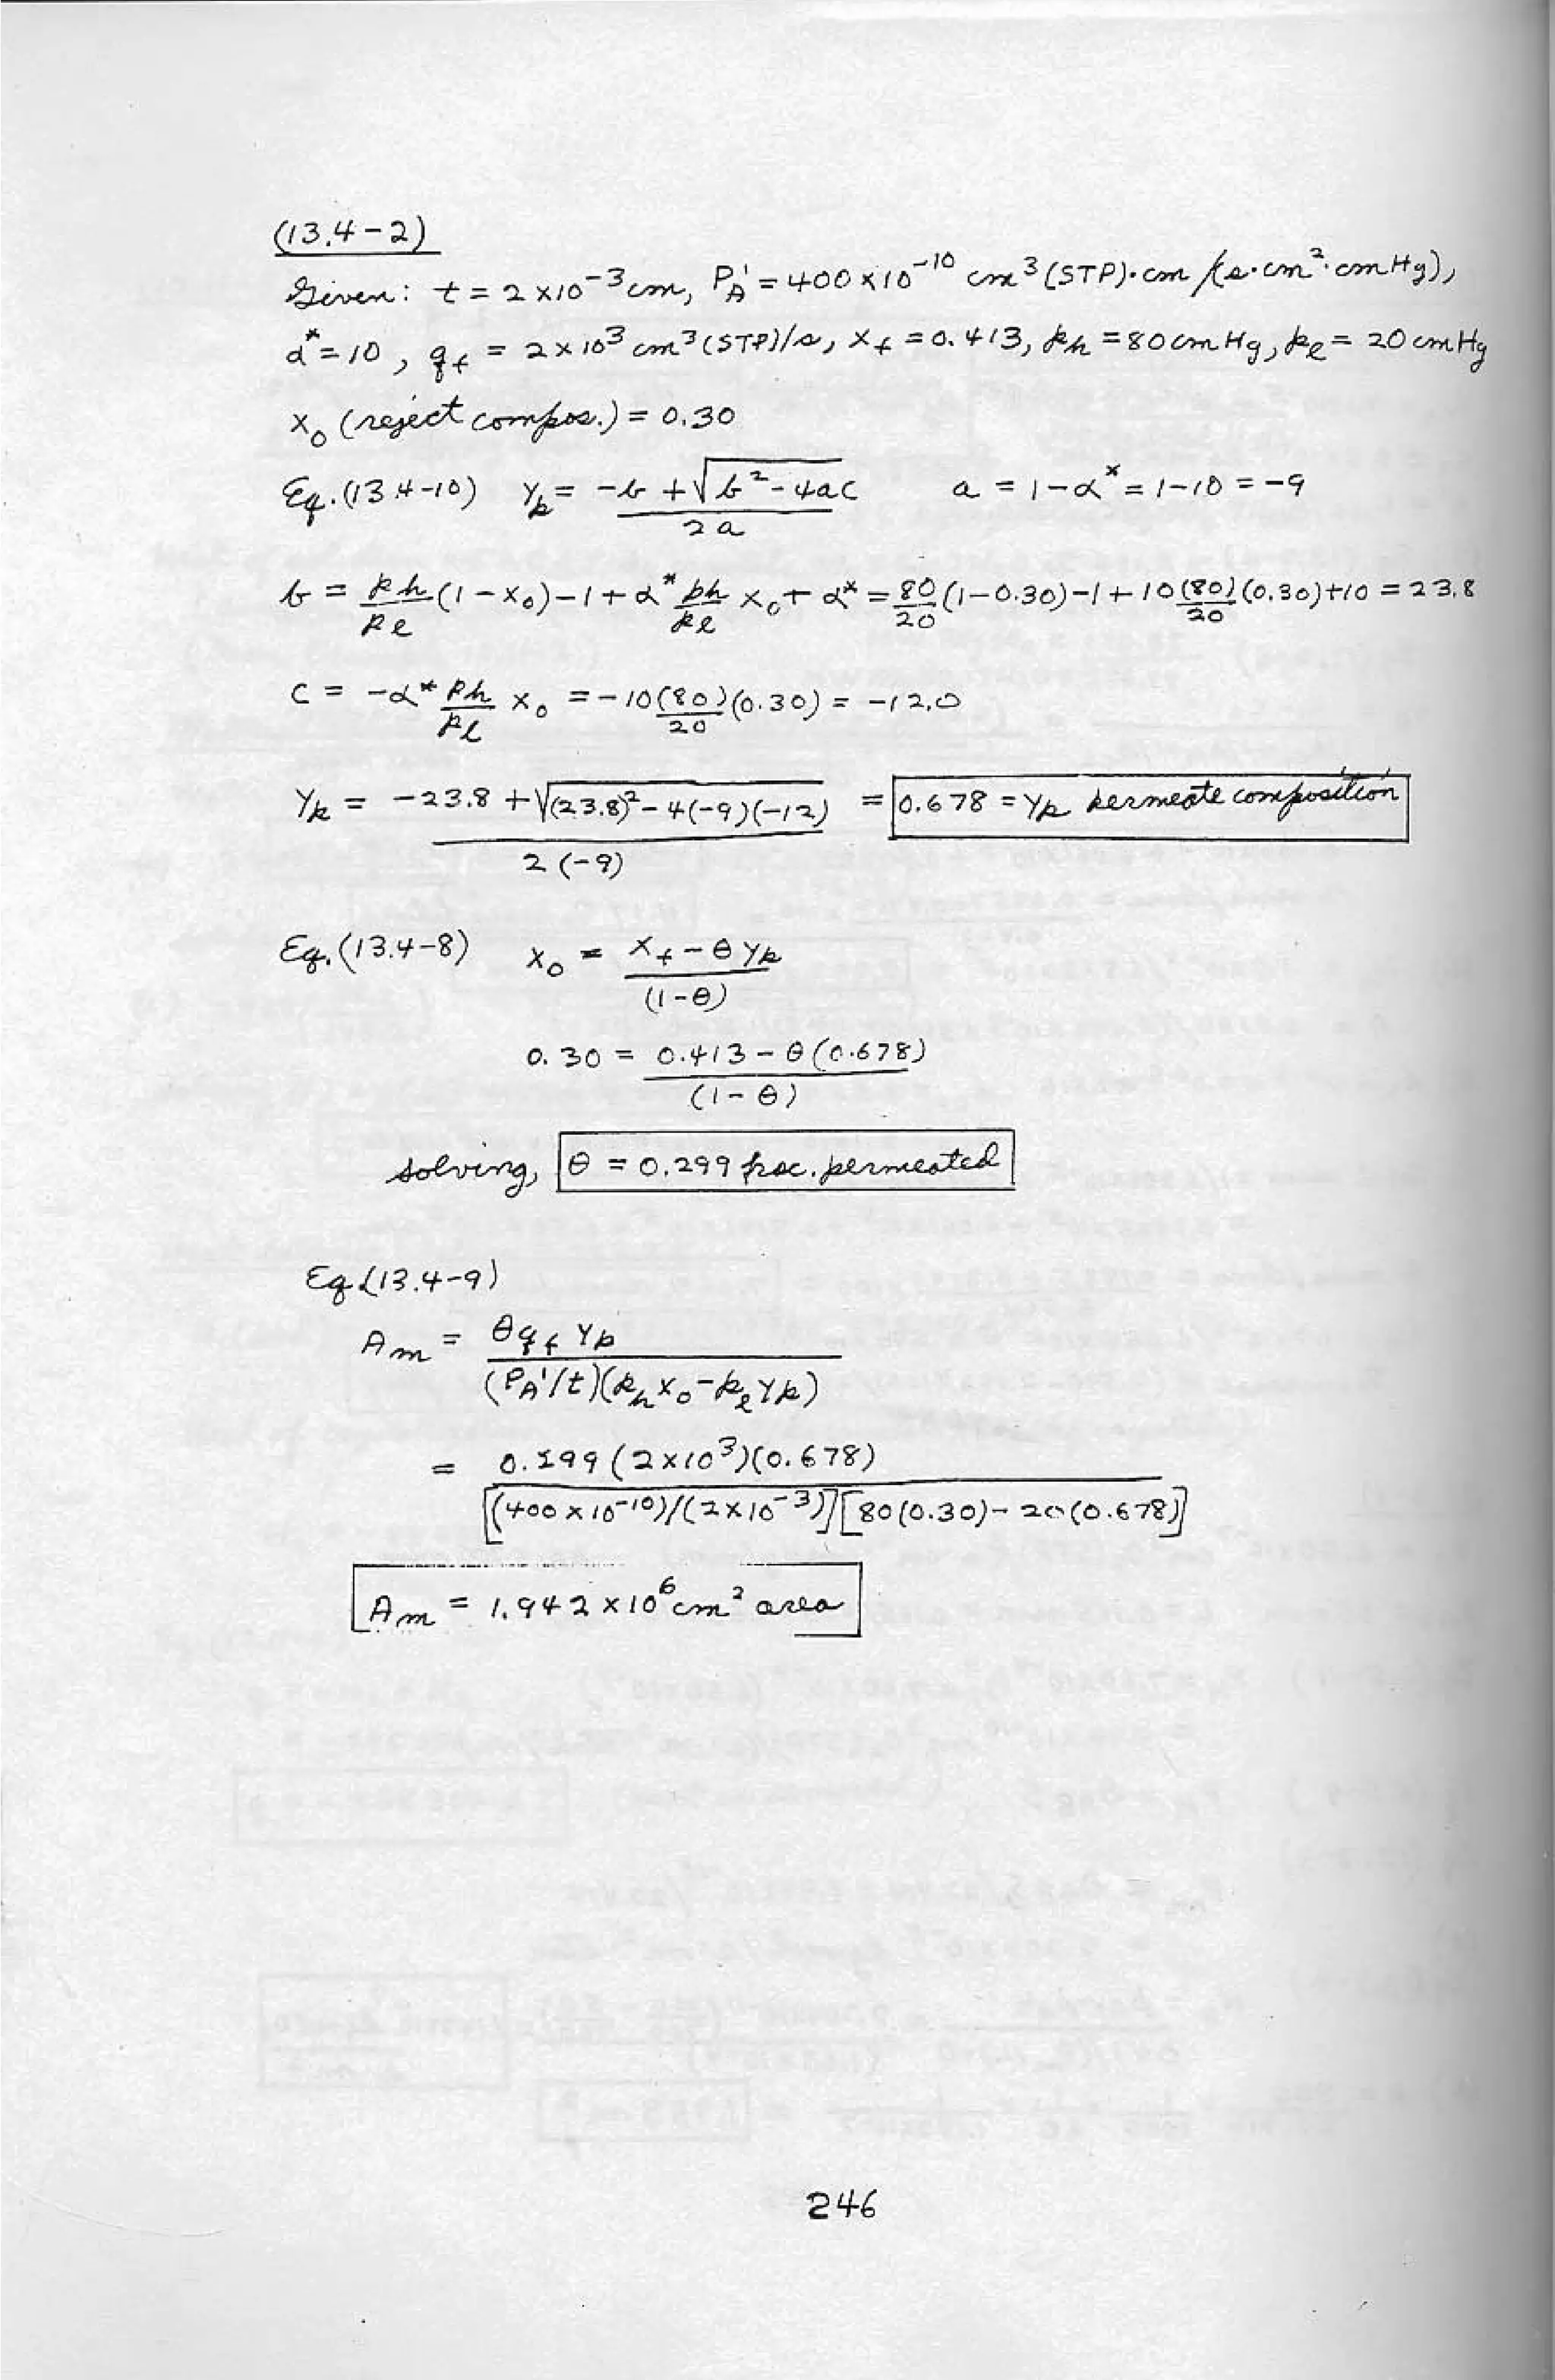 (13.4-2)
Given: t = 2×10⁻³ cm, P_A' = 400×10⁻¹⁰ cm³(STP)·cm/(s·cm²·cmHg),
α* = 10, q_f = 2×10³ cm³(STP)/s, x_f = 0.413, p_h = 80 cmHg, p_l = 20 cmHg
x_o (reject compos.) = 0.30
Eq. (13.4-10) y_p = (-b + √(b² - 4ac)) / 2a a = 1-α* = 1-10 = -9
b = p_h/p_l (1 - x_o) - 1 + α* p_h/p_l x_o + α* = 80/20 (1-0.30) - 1 + 10(80)/20 (0.30)+10 = 23.8
c = -α* p_h/p_l x_o = -10(80)/20 (0.30) = -12.0
y_p = (-23.8 + √((23.8)² - 4(-9)(-12))) / 2(-9) = 0.678 = y_p permeate composition
Eq. (13.4-8) x_o = (x_f - θ y_p) / (1-θ)
0.30 = (0.413 - θ(0.678)) / (1-θ)
solving, θ = 0.299 frac. permeated
Eq. (13.4-9)
A_m = θ q_f y_p / (P_A'/t)(p_h x_o - p_l y_p)
= 0.299 (2×10³)(0.678) / [(400×10⁻¹⁰)/(2×10⁻³)][80(0.30) - 20(0.678)]
A_m = 1.942 × 10⁶ cm² area
246